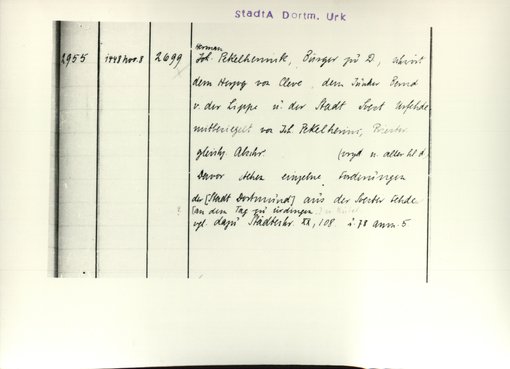 StadtA Dortm. Urk
2955 1448 Nov. 8 2699 Herman
Joh. Pekelherinck, Bürger zu D., schwört
dem Herzog von Cleve, dem Junker Bernd
v. der Lippe u. der Stadt Soest Urfehde
mitbesiegelt von Joh. Pekelherinc, Priester
gleichz. Abschr. (vryd. n. aller hl. d.
Davor stehen einzelne Forderungen
der [Stadt Dortmund] aus der Soester Fehde
[an dem Tag zu
vgl. dazu Städtechr. XX, 108 u. 78 anm. 5